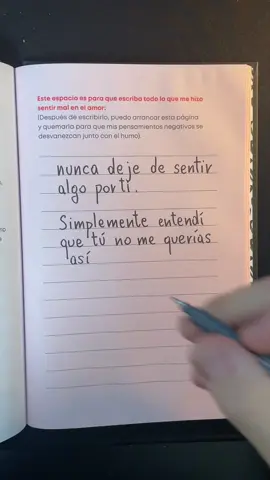 Este espacio es para que escriba todo lo que me hizo
sentir mal en el amor:
(Después de escribirlo, puedo arrancar esta página
y quemarla para que mis pensamientos negativos se
desvanezcan junto con el humo).
nunca deje de sentir
algo por ti.
Simplemente entendí
que tú no me querías
así